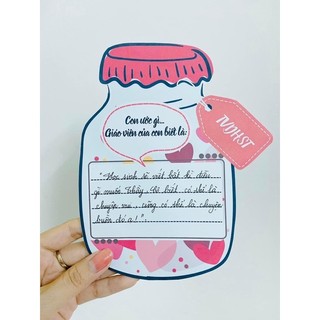 Con ước gì...
Giáo viên của con biết là:
TVĐHST
"Học sinh sẽ viết bất kì điều
gì muốn Thầy, Cô biết, có thể là
chuyện vui, cũng có thể là chuyện
buồn đó ạ!".